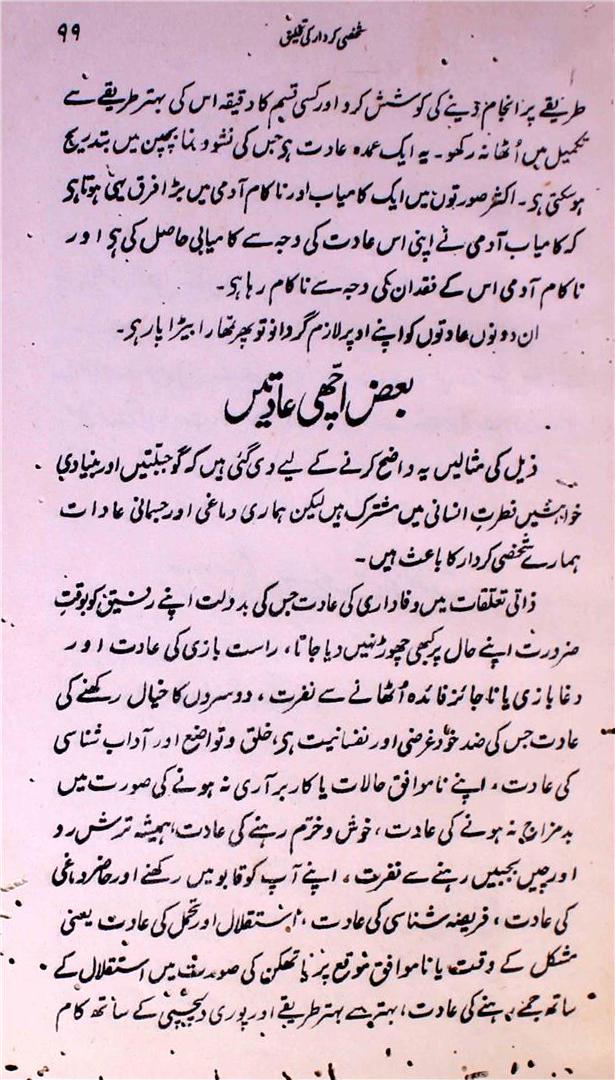 ۹۹
شخصی کردار کی تخلیق
طریقے پر انجام دینے کی کوشش کرو اور کسی قسم کا دقیقہ اس کی بہتر طریقے سے
تکمیل میں اُٹھا نہ رکھو۔ یہ ایک عمدہ عادت ہی جس کی نشو و نما بچپن میں بتدریج
ہوسکتی ہی۔ اکثر صورتوں میں ایک کامیاب اور ناکام آدمی میں بڑا فرق یہی ہوتا ہی
کہ کامیاب آدمی نے اپنی اس عادت کی وجہ سے کامیابی حاصل کی ہی اور
ناکام آدمی اس کے فقدان کی وجہ سے ناکام رہا ہی۔
ان دونوں عادتوں کو اپنے اوپر لازم گردانو تو پھر تمھارا بیڑا پار ہی۔
بعض اچھی عادتیں
ذیل کی مثالیں یہ واضح کرنے کے لیے دی گئی ہیں کہ گو جبلتیں اور بنیادی
خواہشیں فطرتِ انسانی میں مشترک ہیں لیکن ہماری دماغی اور جسمانی عادات
ہمارے شخصی کردار کا باعث ہیں۔
ذاتی تعلقات میں وفاداری کی عادت جس کی بدولت اپنے رفیق کو بوقتِ
ضرورت اپنے حال پر کبھی چھوڑ نہیں دیا جاتا، راست بازی کی عادت اور
دغابازی یا ناجائز فائدہ اُٹھانے سے نفرت، دوسروں کا خیال رکھنے کی
عادت جس کی ضد خود غرضی اور نفسانیت ہی، خلق و تواضع اور آداب شناسی
کی عادت، اپنے ناموافق حالات یا کاربرآری نہ ہونے کی صورت میں
بدمزاج نہ ہونے کی عادت، خوش و خرّم رہنے کی عادت، ہمیشہ ترش رو
اور چیں بجبیں رہنے سے نفرت، اپنے آپ کو قابو میں رکھنے اور حاضر دماغی
کی عادت، فریضہ شناسی کی عادت، استقلال اور تحمل کی عادت یعنی
مشکل کے وقت یا ناموافق موقع پر یا تھکن کی صورت میں استقلال کے
ساتھ جمے رہنے کی عادت، بہتر سے بہتر طریقے اور پوری دلچسپی کے ساتھ کام